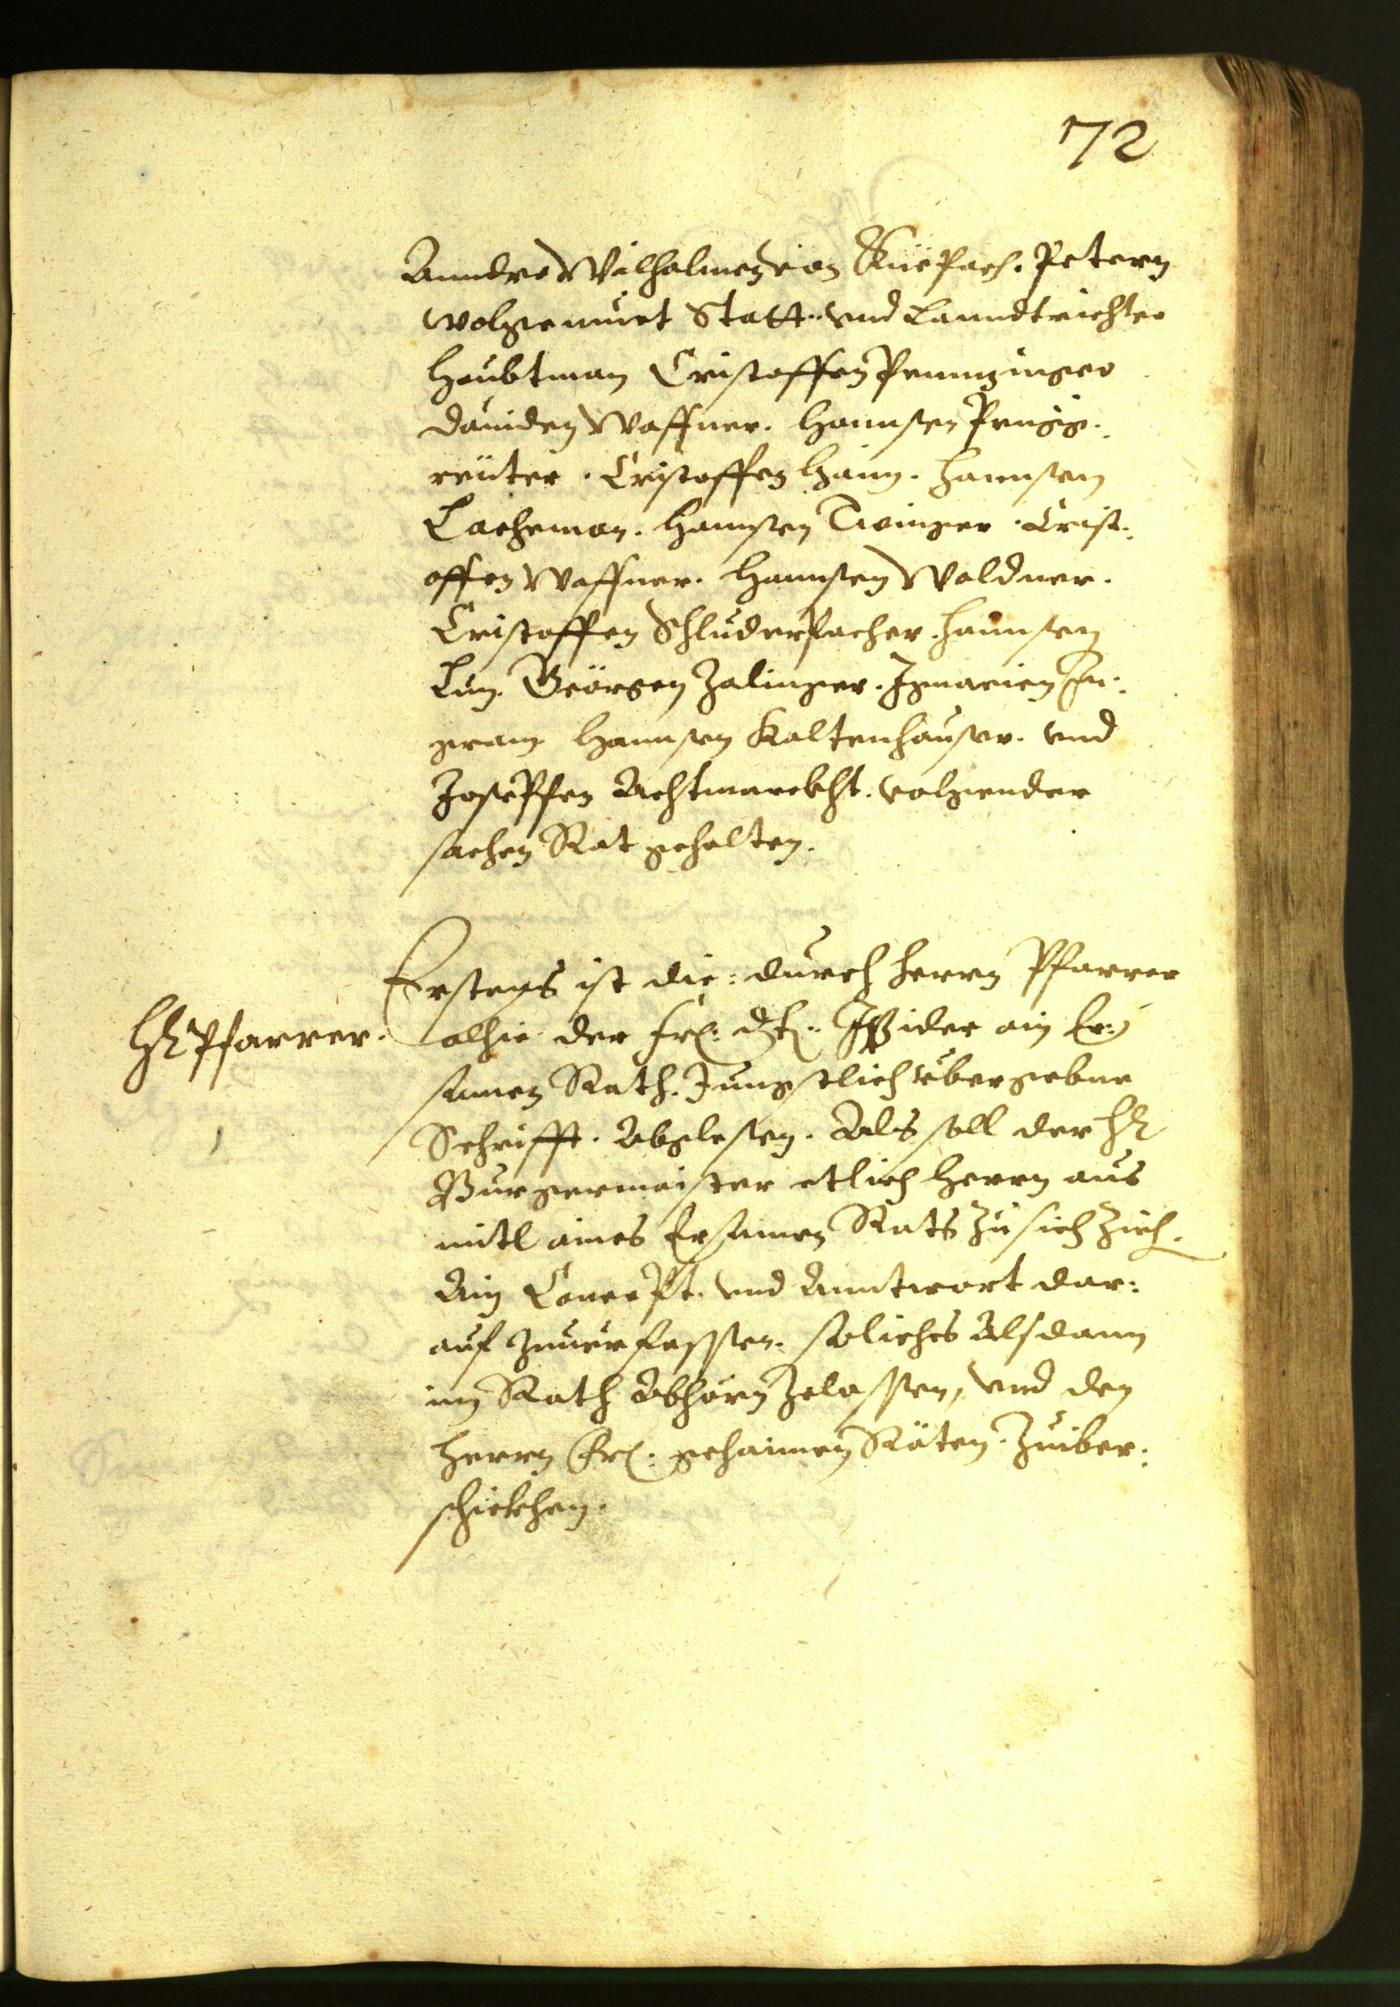 72
Anndre Wilhalmen von Küepach. Petern
wolgemuet Statt- und Lanndtrichter
Haubtman Cristoffen Pennzinger
Dauiden Waffner. Hannsen Prugg-
reuter. Cristoffen Hain. Hannsen
Lachman. Hannsen Twinger. Crist-
offen Waffner. Hannsen Waldner.
Cristoffen Schluderpacher. Hannsen
Lun. Geörgen Zalinger. Ignacien In-
gram Hannsen Kaltenhauser. und
Josephen Achtmarckht. volgender
sachen Rat gehalten.
Erstens ist die: durch herrn Pfarrer
H: Pfarrer.
alhie der frl: dt: wider ain Er-
samen Rath. Jungstlich übergebne
Schrifft. Abglesen. Als soll der H:
Burgermaister etlich Herrn aus
mitl aines Ersamen Rats zu sich zieh.
Ain Concept. und Anntwort dar-
auf zuuerfassen. soliches Alsdann
im Rath Abhörn zelassen, und den
Herrn frl: gehaimen Räten. Zuiber-
schickhen.